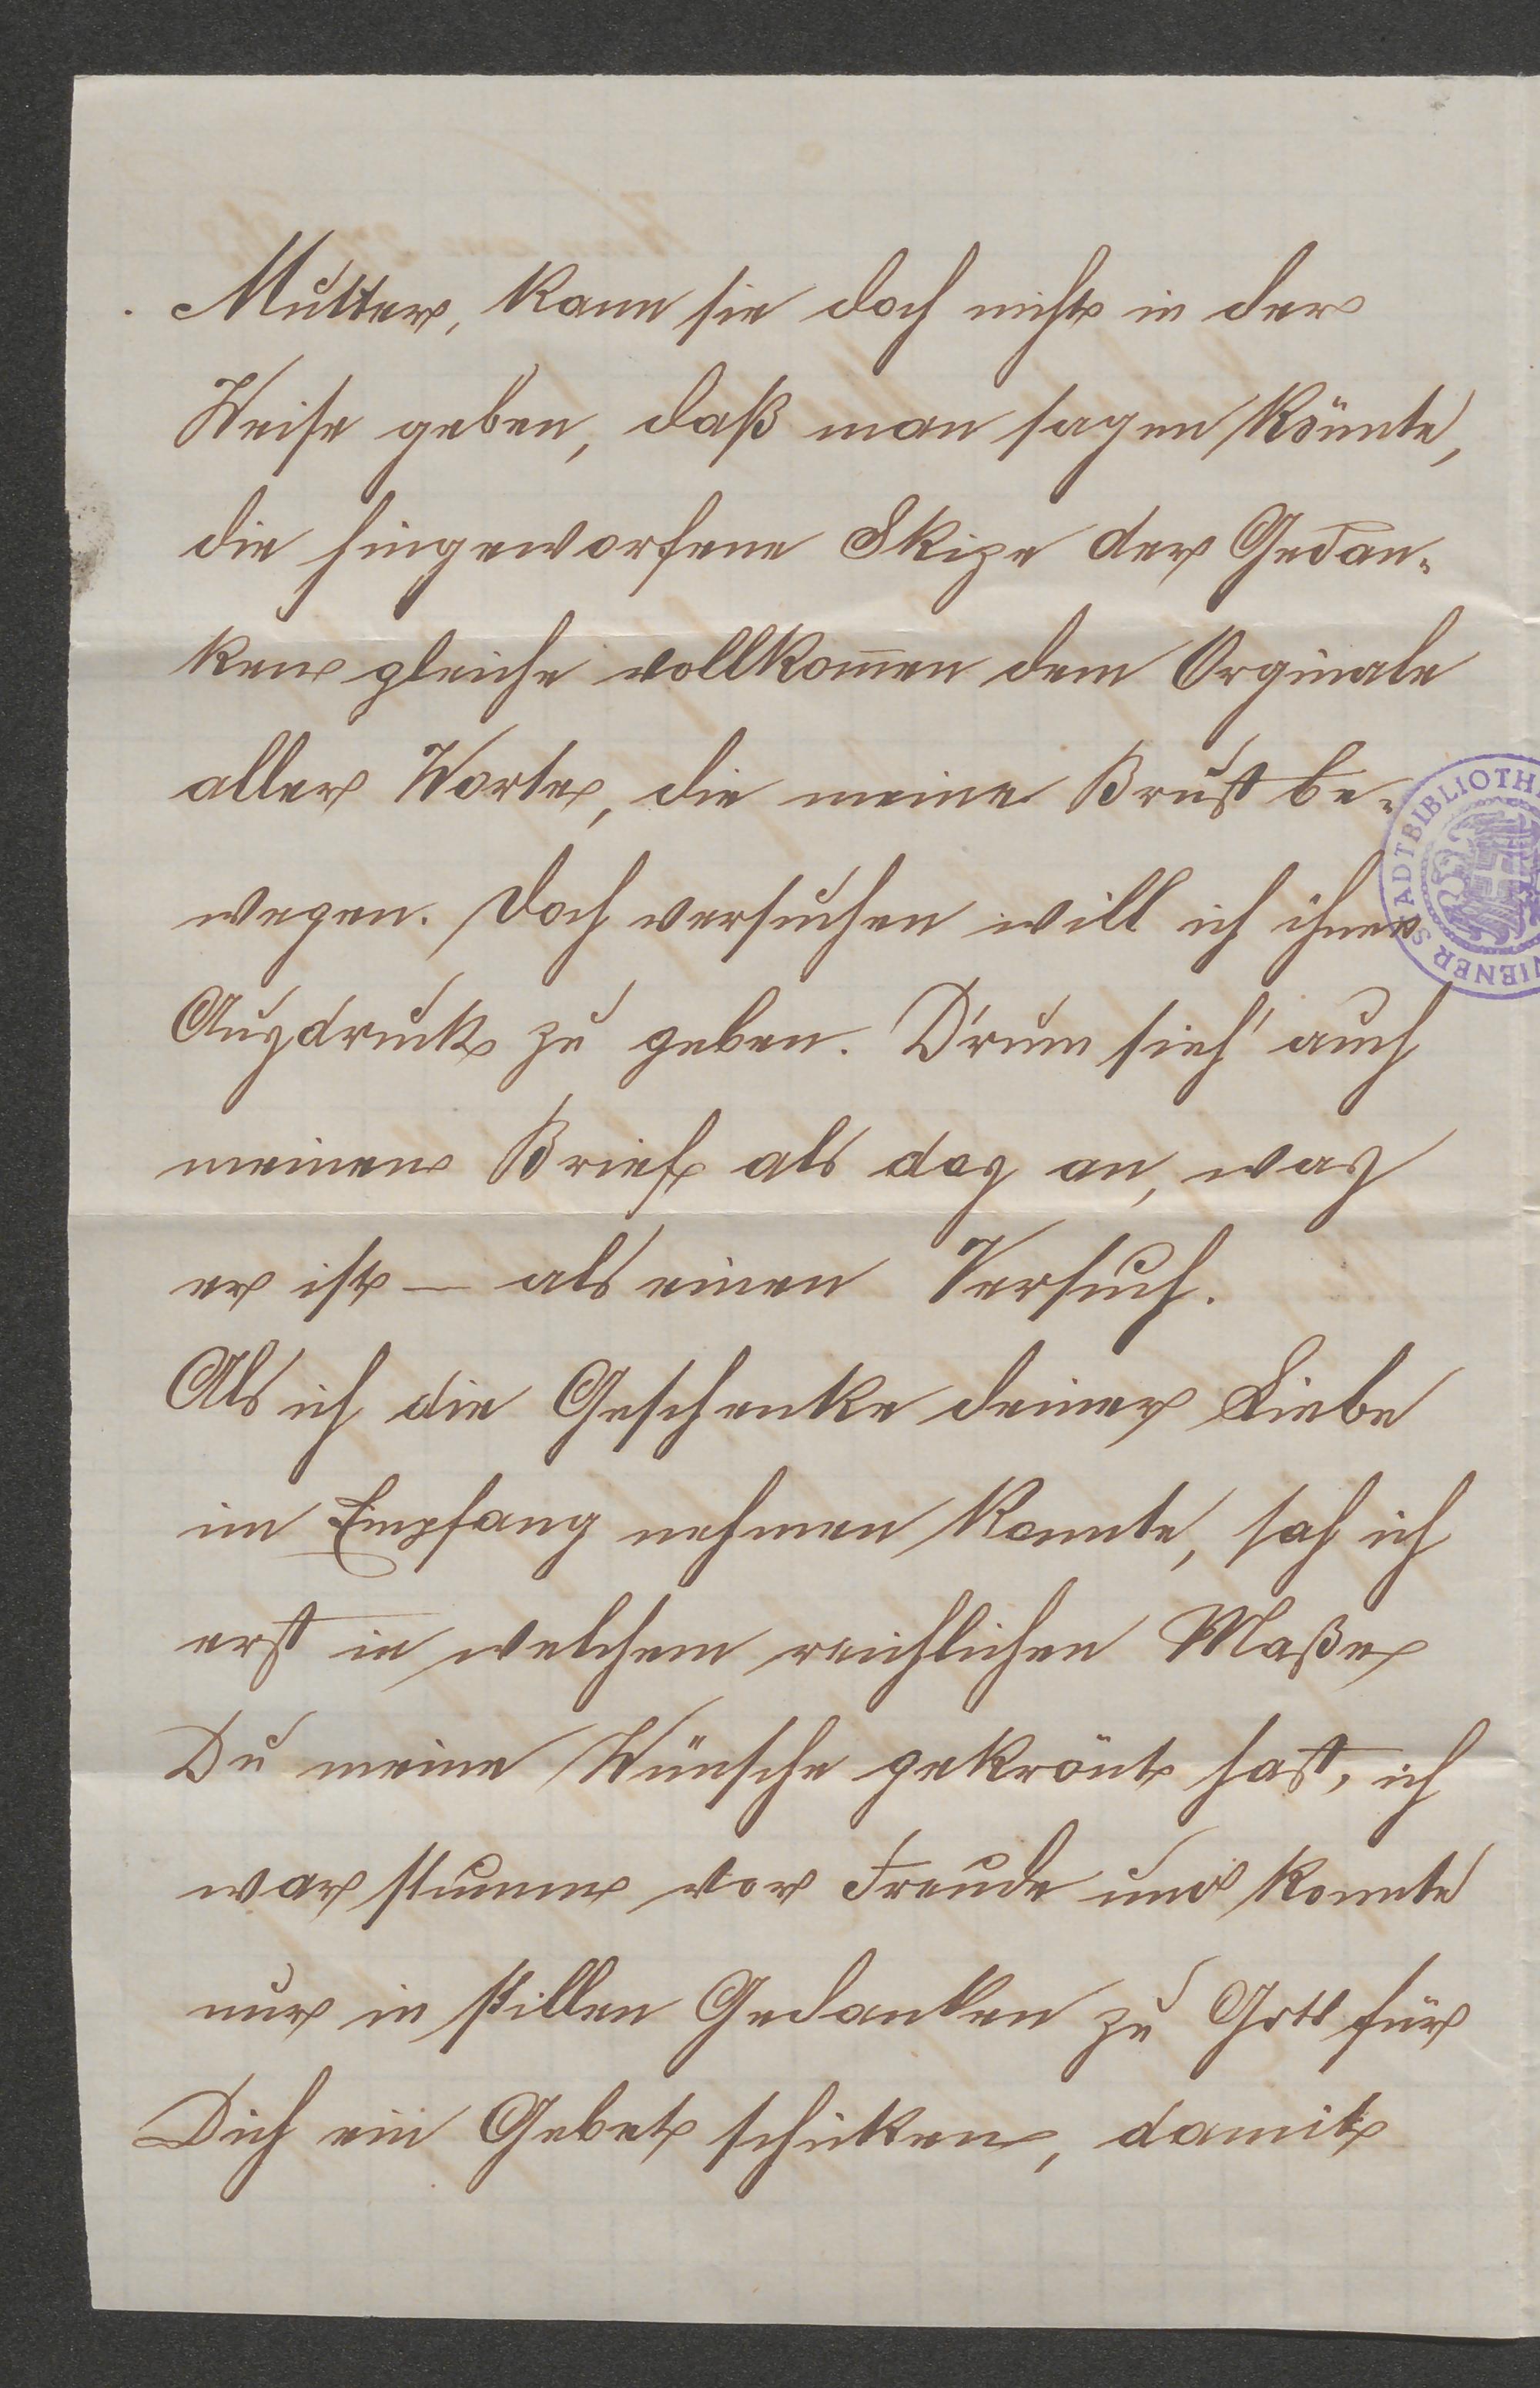 Mutter, kann sie doch nicht in der
Weise geben, daß man sagen könnte,
die hingeworfene Skize der Gedan-
ken gleiche vollkom̅en dem Orginale
aller Worte, die meine Brust be-
wegen. Doch versuchen will ich ihnen
Ausdruck zu geben. D'rum sieh' auch
meinen Brief als das an, was
er ist — als einen Versuch.
Als ich die Geschenke deiner Liebe
im Empfang nehmen konnte, sah ich
erst in welchem reichlichen Maße
Du meine Wünsche gekrönt hast, ich
war stumm vor Freude und konnte
nur in stillen Gedanken zu Gott für
Dich ein Gebet schicken, damit
WIENER STADTBIBLIOTH